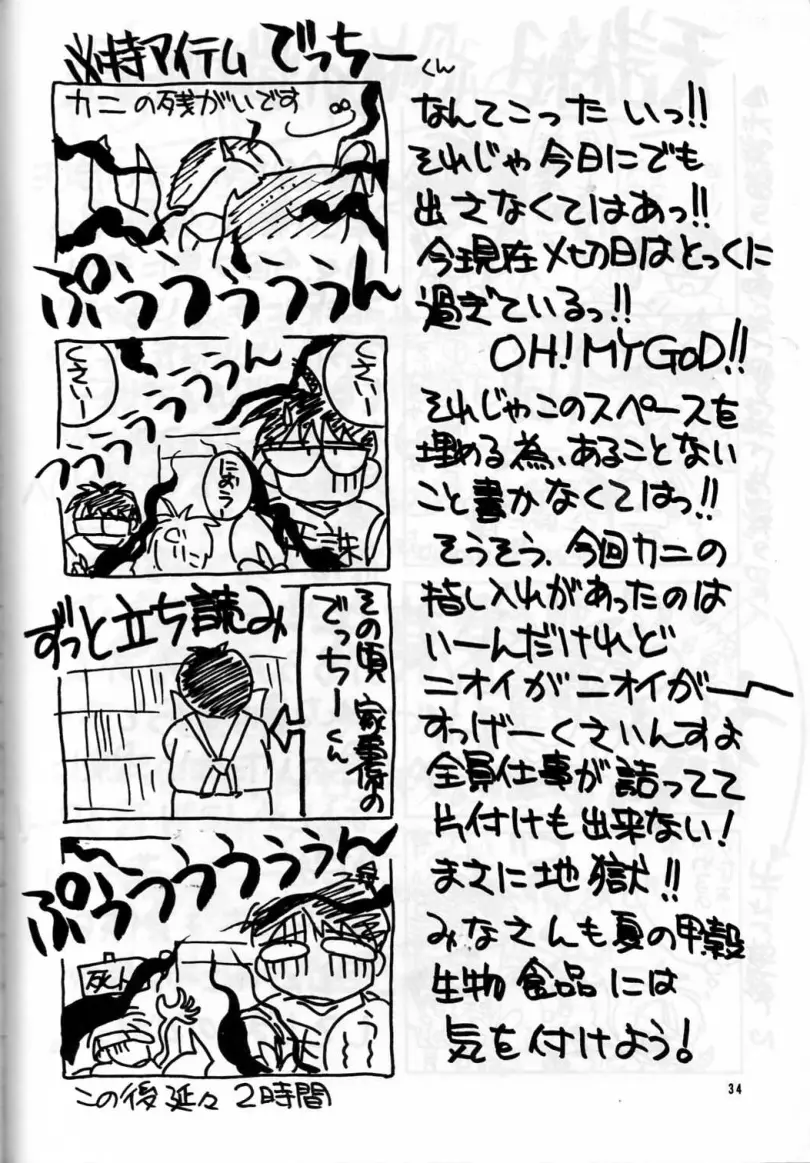 必特アイテム でっちーくん
カニの残がいです
ぷぅぅぅぅぅぅん
くさいー
くさいー
におうー
誅
その頃 家事係の
でっちーくん
ずっと立ち読み
ぷぅぅぅぅぅぅん
死
この後延々 2時間
なんてこったいっ!!
それじゃ今日にでも
出さなくてはあっ!!
今現在〆切日はとっくに
過ぎているっ!!
OH! MY GOD!!
それじゃこのスペースを
埋める為、あることない
こと書かなくてはっ!!
そうそう、今回カニの
差し入れがあったのは
いーんだけれど
ニオイがニオイがー
すっげーくさいんすよ
全員仕事が詰ってて
片付けも出来ない!
まさに地獄!!
みなさんも夏の甲殻
生物食品には
気を付けよう!
34